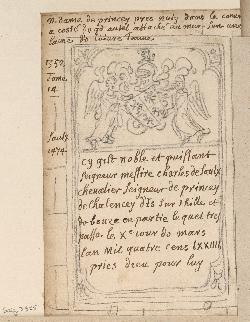 N. dame de princey pres nuis dans le coeur
a costé du gd autel attaché au mur sur une
lame de cuivre jaune
1350.
Tome
14.
Saulx
1474.
cy gist noble et puissant
seigneur messire charles de saulx
chevalier seigneur de princey
de chalencey dis sur thille et
de bouze en partie lequel tres
passa le Xe iour de mars
lan Mil quatre cens LXXIIII
pries dieu pour luy